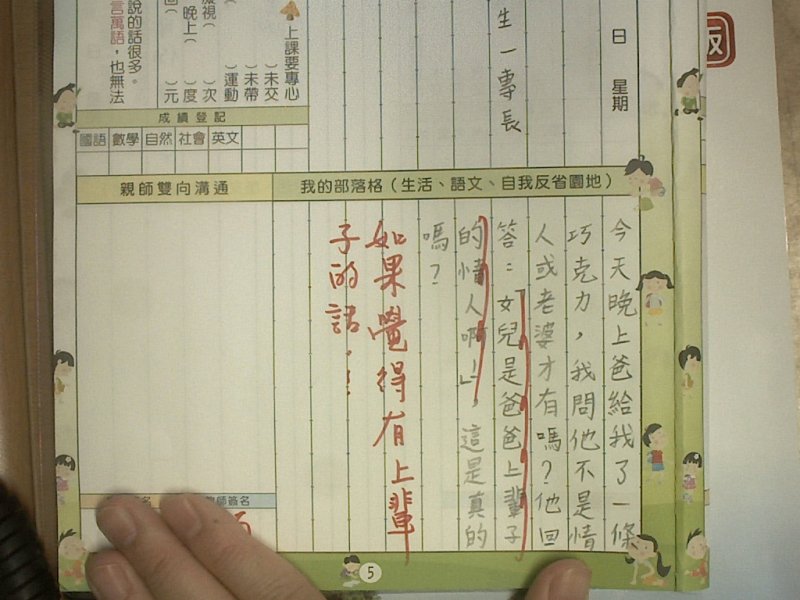 日 星期
生一專長
上課要專心
)未交
)未帶
)運動
)次
晚上( )度
回( )元
說的話很多。
言萬語，也無法
成績登記
國語 數學 自然 社會 英文
親師雙向溝通
我的部落格（生活、語文、自我反省園地）
今天晚上爸給我了一條
巧克力，我問他不是情
人或老婆才有嗎？他回
答：「女兒是爸爸上輩子
的情人啊!」，這是真的
嗎？
如果覺得有上輩
子的話．！
師簽名
5